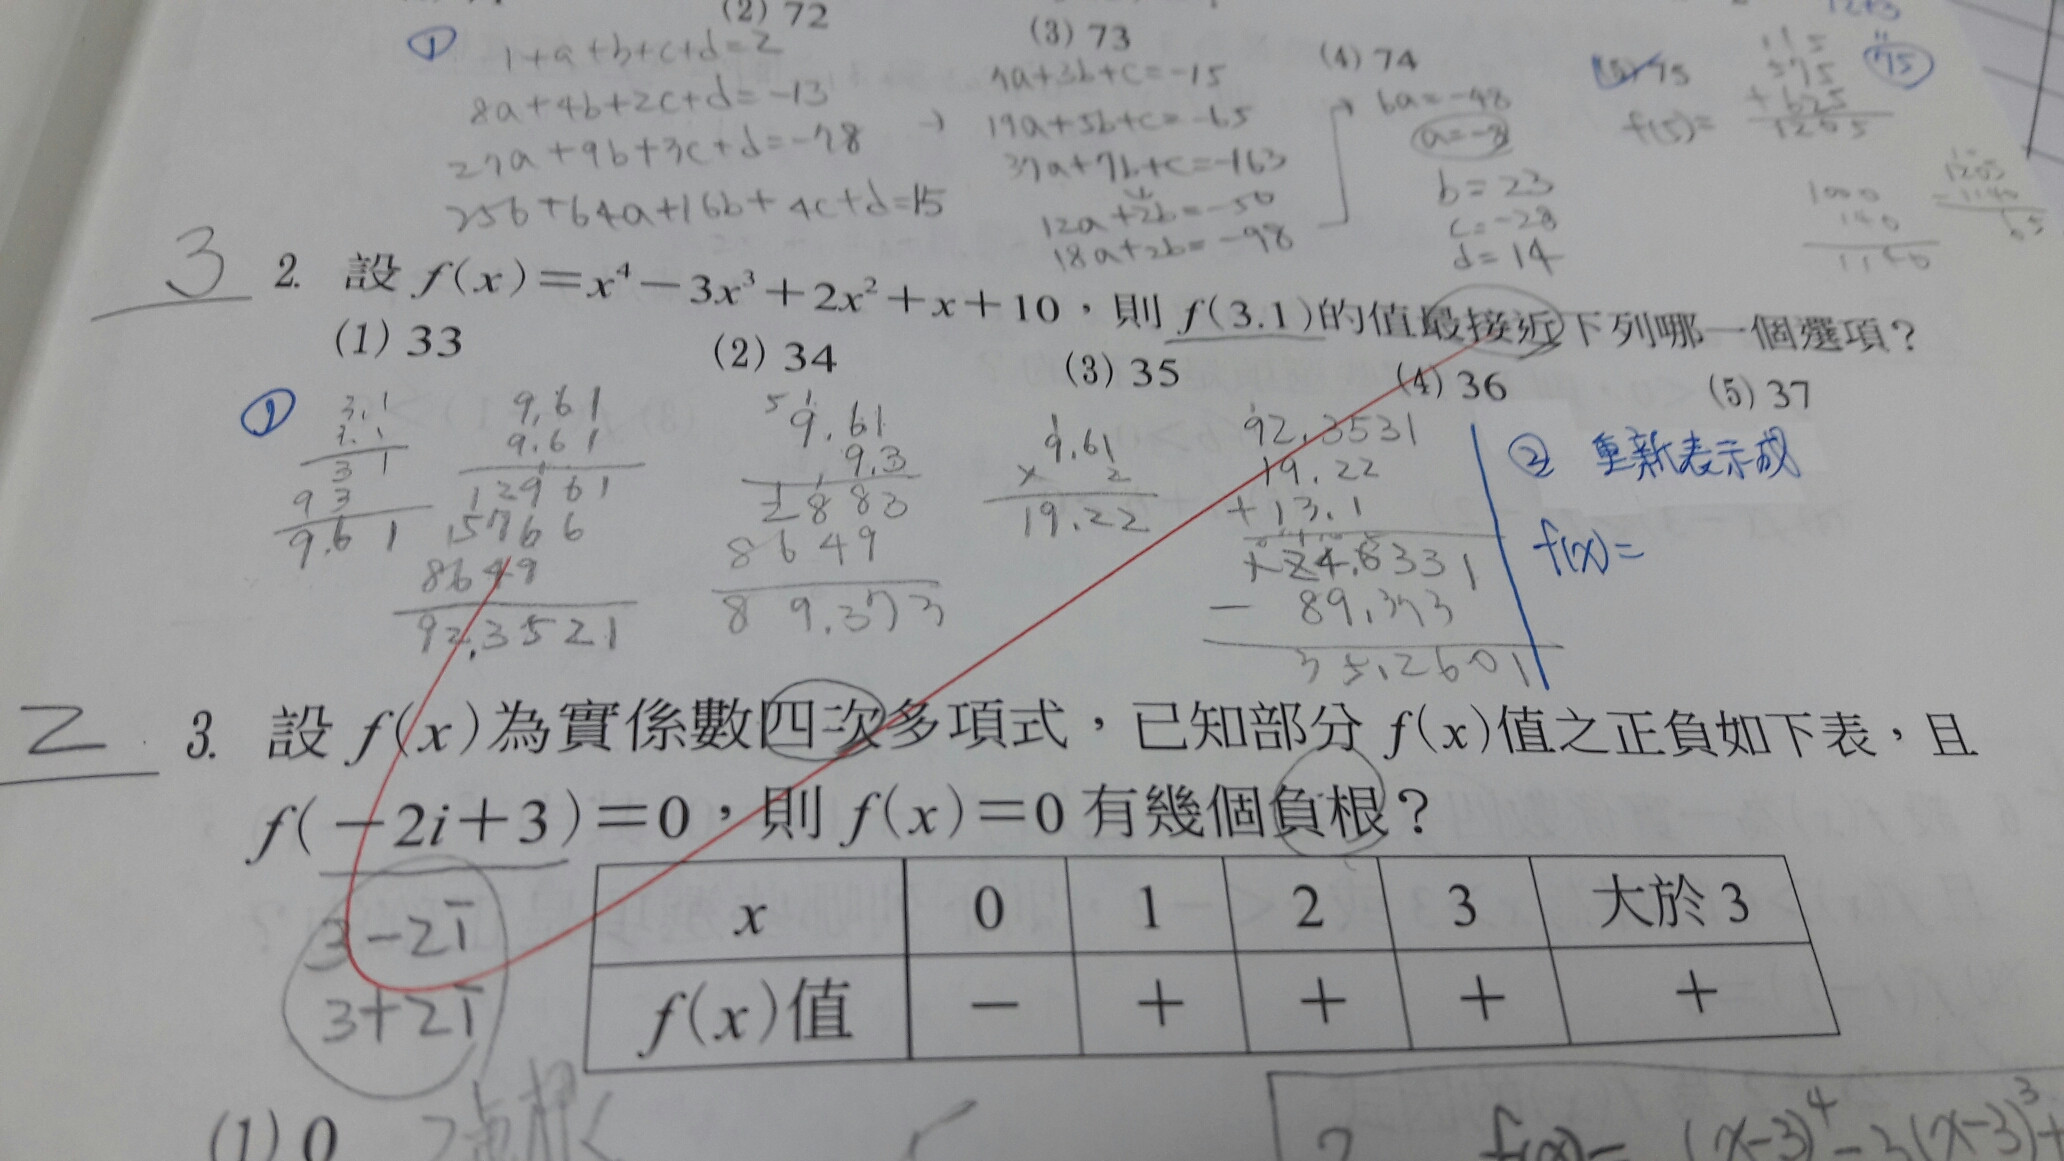 (2) 72
(3) 73
(4) 74
(5) 75
75
①
1+a+b+c+d=2
8a+4b+2c+d=-13
27a+9b+3c+d=-78
256+64a+16b+4c+d=15
7a+3b+c=-15
→ 19a+5b+c=-65
37a+7b+c=-163
12a+2b=-50
18a+2b=-98
→ 6a=-48
b=23
c=-28
d=14
f(5)=
575
+625
1205
1000
140
1140
1205
-1140
65
3
2. 設 f(x)=x⁴-3x³+2x²+x+10,則 f(3.1)的值最接近下列哪一個選項?
(1) 33
(2) 34
(3) 35
(4) 36
(5) 37
①
3.1
3.1
3 1
9 3
9.6 1
9.61
9.61
12961
5766
8649
92.3521
9.61
9.3
2883
8649
89.373
9.61
× 2
19.22
92.3531
19.22
+13.1
124.6331
- 89.373
35.2601
② 重新表示成
f(x)=
2
3. 設 f(x)為實係數四次多項式,已知部分 f(x)值之正負如下表,且
f(-2i+3)=0,則 f(x)=0 有幾個負根?
3-2i
3+2i
x 0 1 2 3 大於 3
f(x)值 - + + + +
(1) 0
2
f(x)= (x-3)⁴-3(x-3)³+